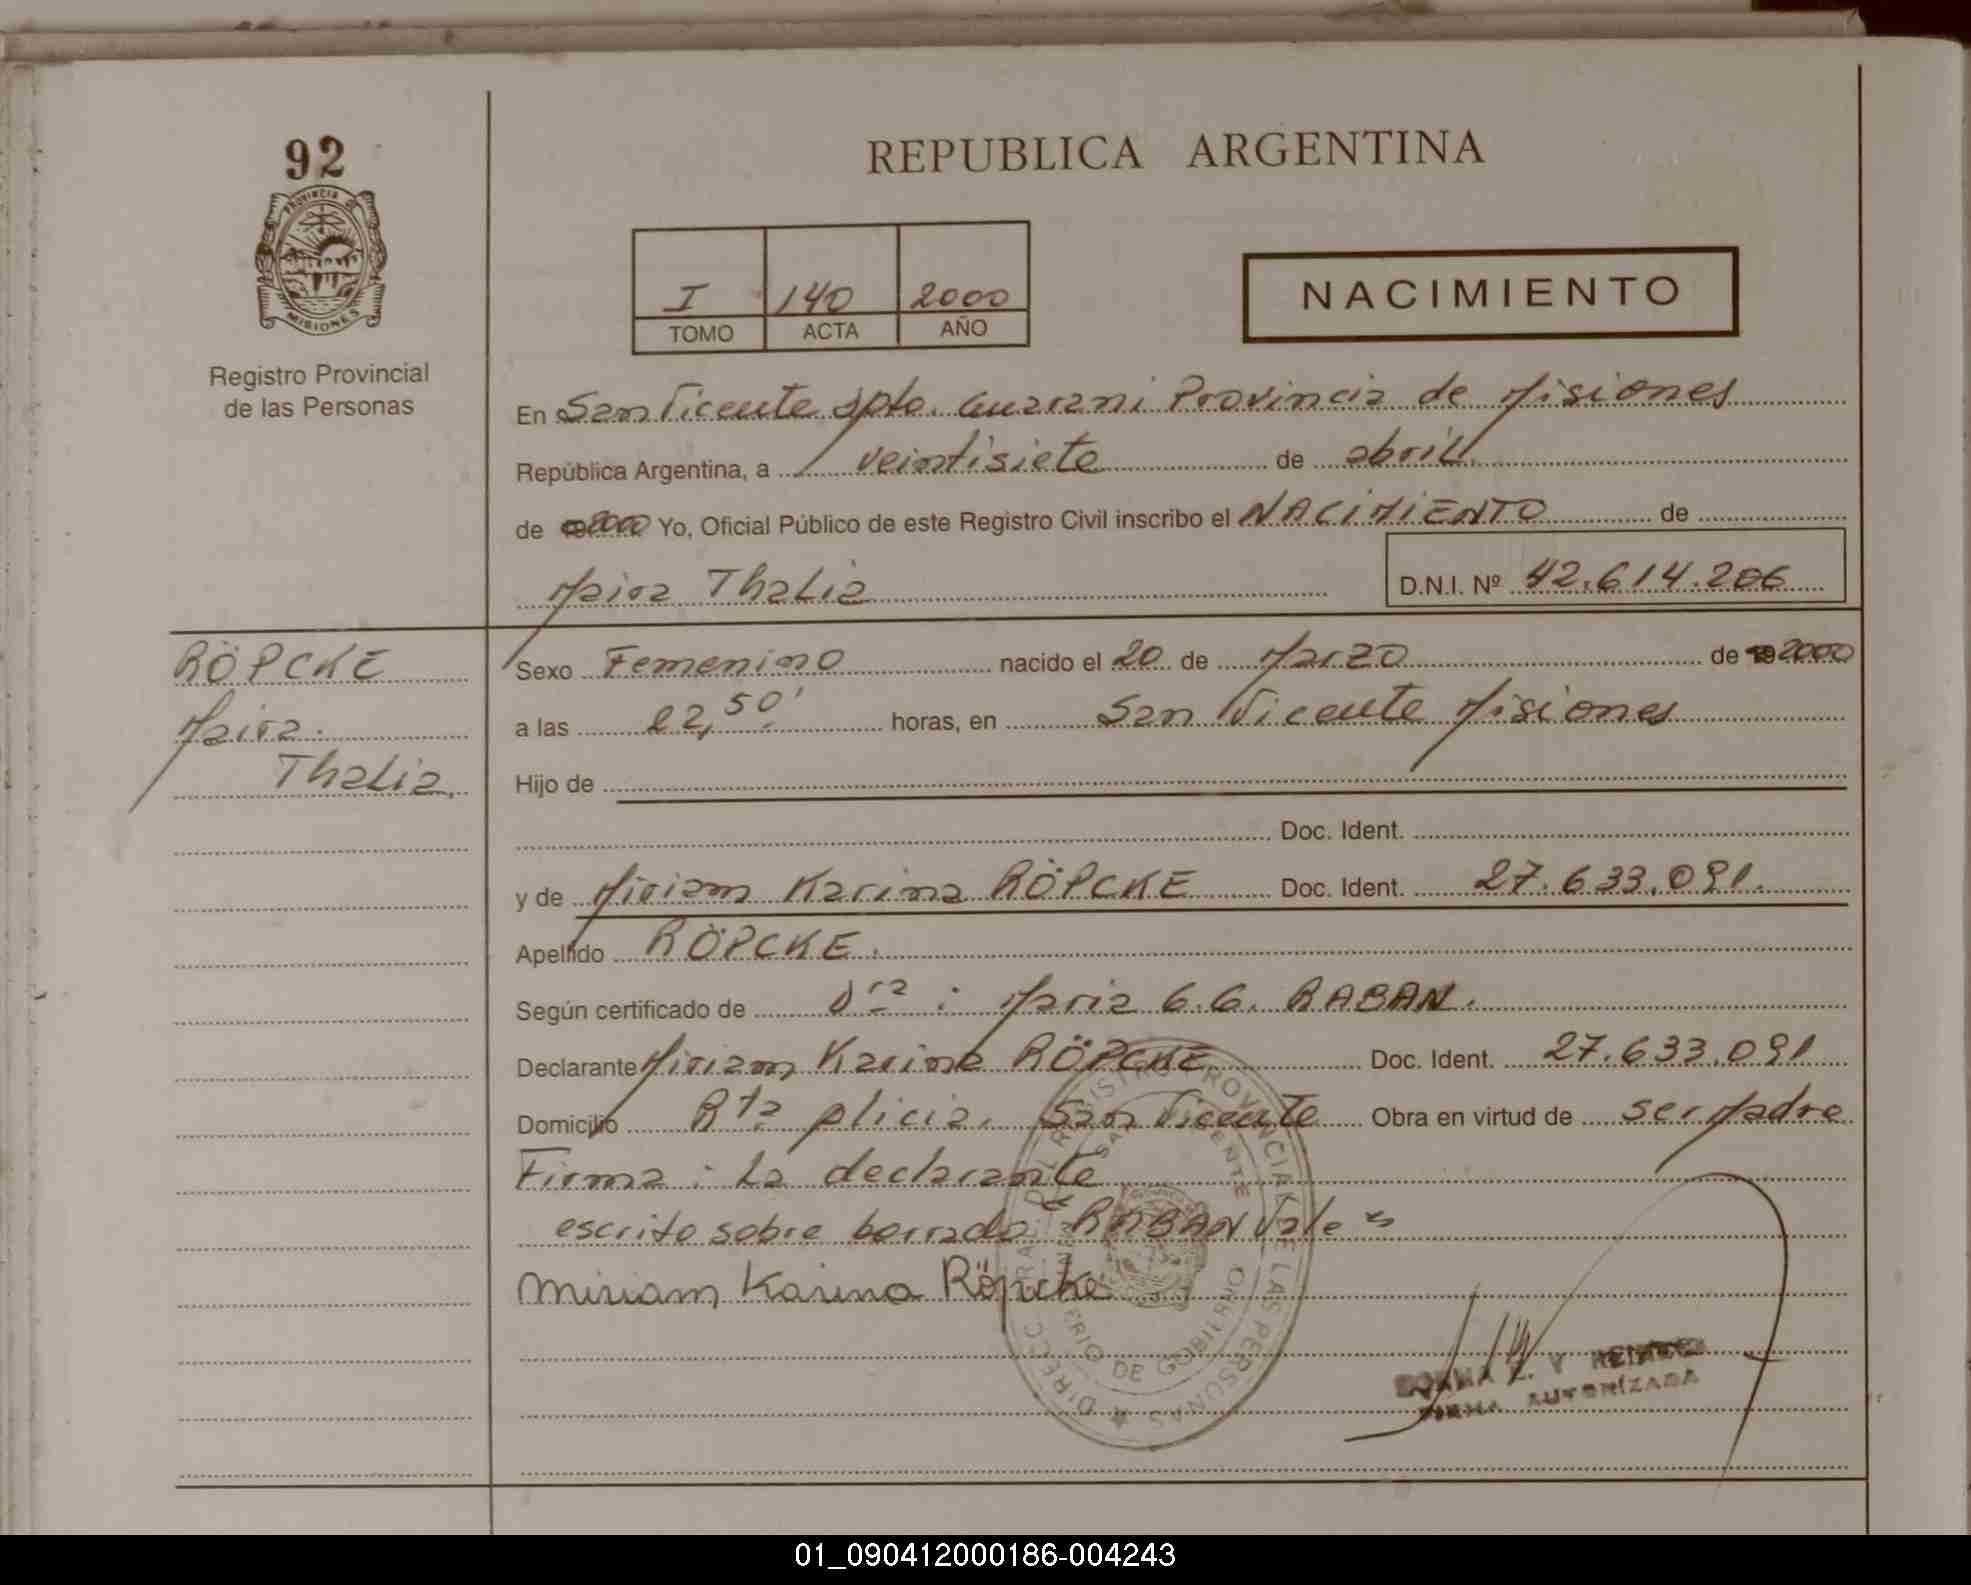 92
PROVINCIA DE
MISIONES
Registro Provincial
de las Personas
REPUBLICA ARGENTINA
I 140 2000
TOMO ACTA AÑO
NACIMIENTO
En San Vicente Dpto. Guarani Provincia de Misiones
República Argentina, a veintisiete de abril
de 2000 Yo, Oficial Público de este Registro Civil inscribo el NACIMIENTO de
Maira Thalia D.N.I. Nº 42.614.206
RÖPCKE
Maira
Thalia
Sexo Femenino nacido el 20 de Marzo de 2000
a las 22,50' horas, en San Vicente Misiones
Hijo de
Doc. Ident.
y de Miriam Karina RÖPCKE Doc. Ident. 27.633.091.
Apellido RÖPCKE.
Según certificado de Dra: Maria G.G. RABAN.
Declarante Miriam Karina RÖPCKE Doc. Ident. 27.633.091
Domicilio Rta plicia, San Vicente Obra en virtud de ser Madre
Firma: La declarante
escrito sobre borrado: RABAN Vale
Miriam Karina Röpcke
REGISTRO PROVINCIAL DE LAS PERSONAS
SAN VICENTE
FIRMA AUTORIZADA
01_090412000186-004243